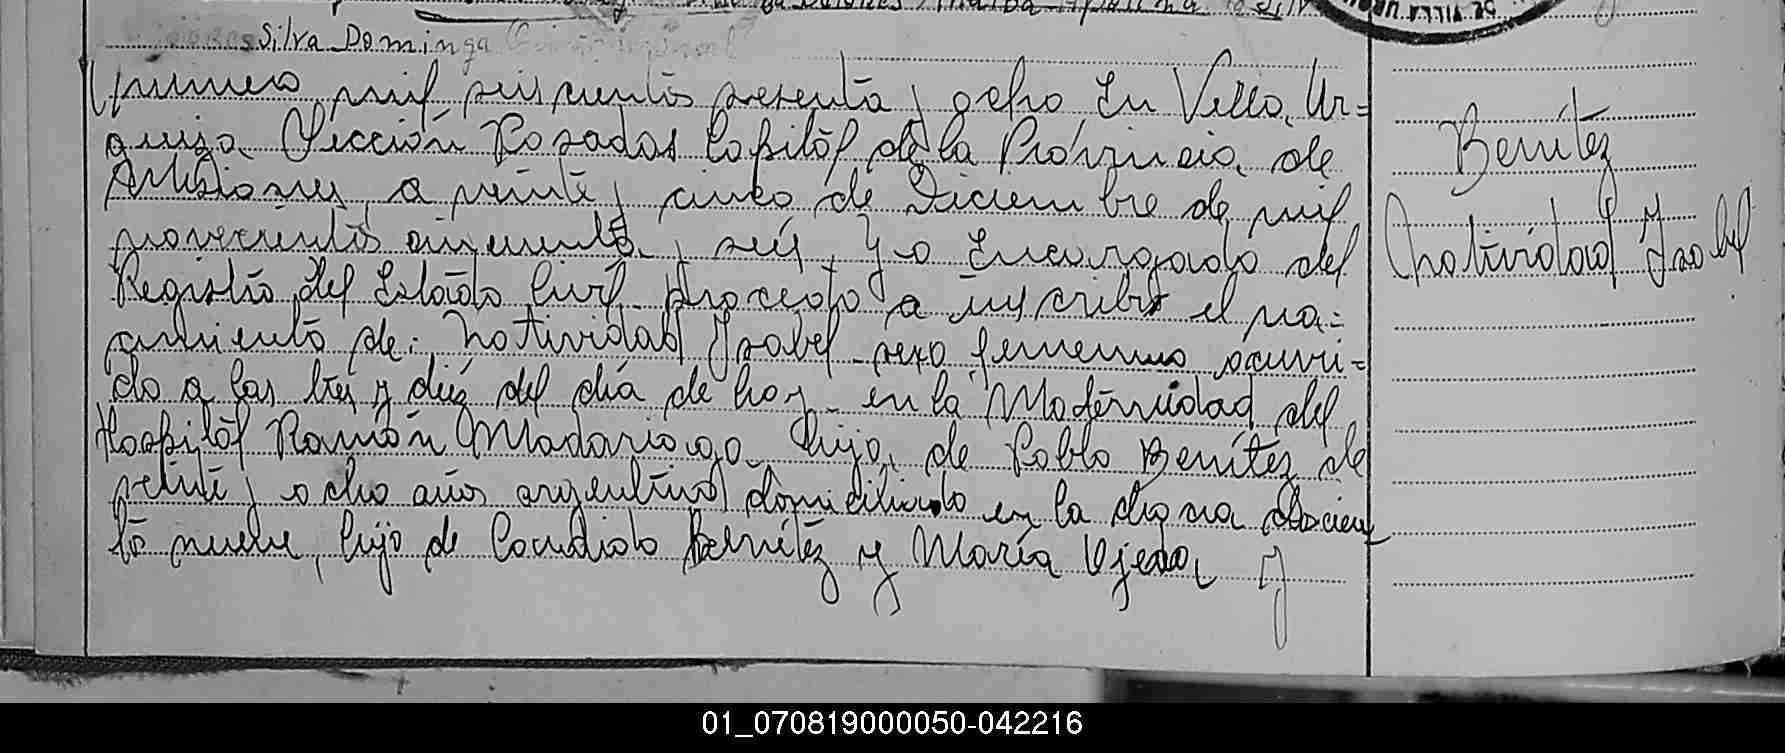 Silva Dominga
Número mil seiscientos sesenta y ocho En Villa Ur=
quiza Sección Posadas Capital de la Provincia de
Misiones, a veinte y cinco de Diciembre de mil
novecientos cincuenta y seis, Yo Encargado del
Registro del Estado Civil procedo a inscribir el na=
cimiento de: Natividad Ysabel sexo femenino ocurri=
do a las tres y diez del día de hoy en la Maternidad del
Hospital Ramón Madariaga hija de Pablo Benítez de
veinte y ocho años argentino domiciliado en la chacra doscien
to nueve, hijo de Candido Benítez y María Ojeda y
Benítez
Natividad Ysabel
01_070819000050-042216